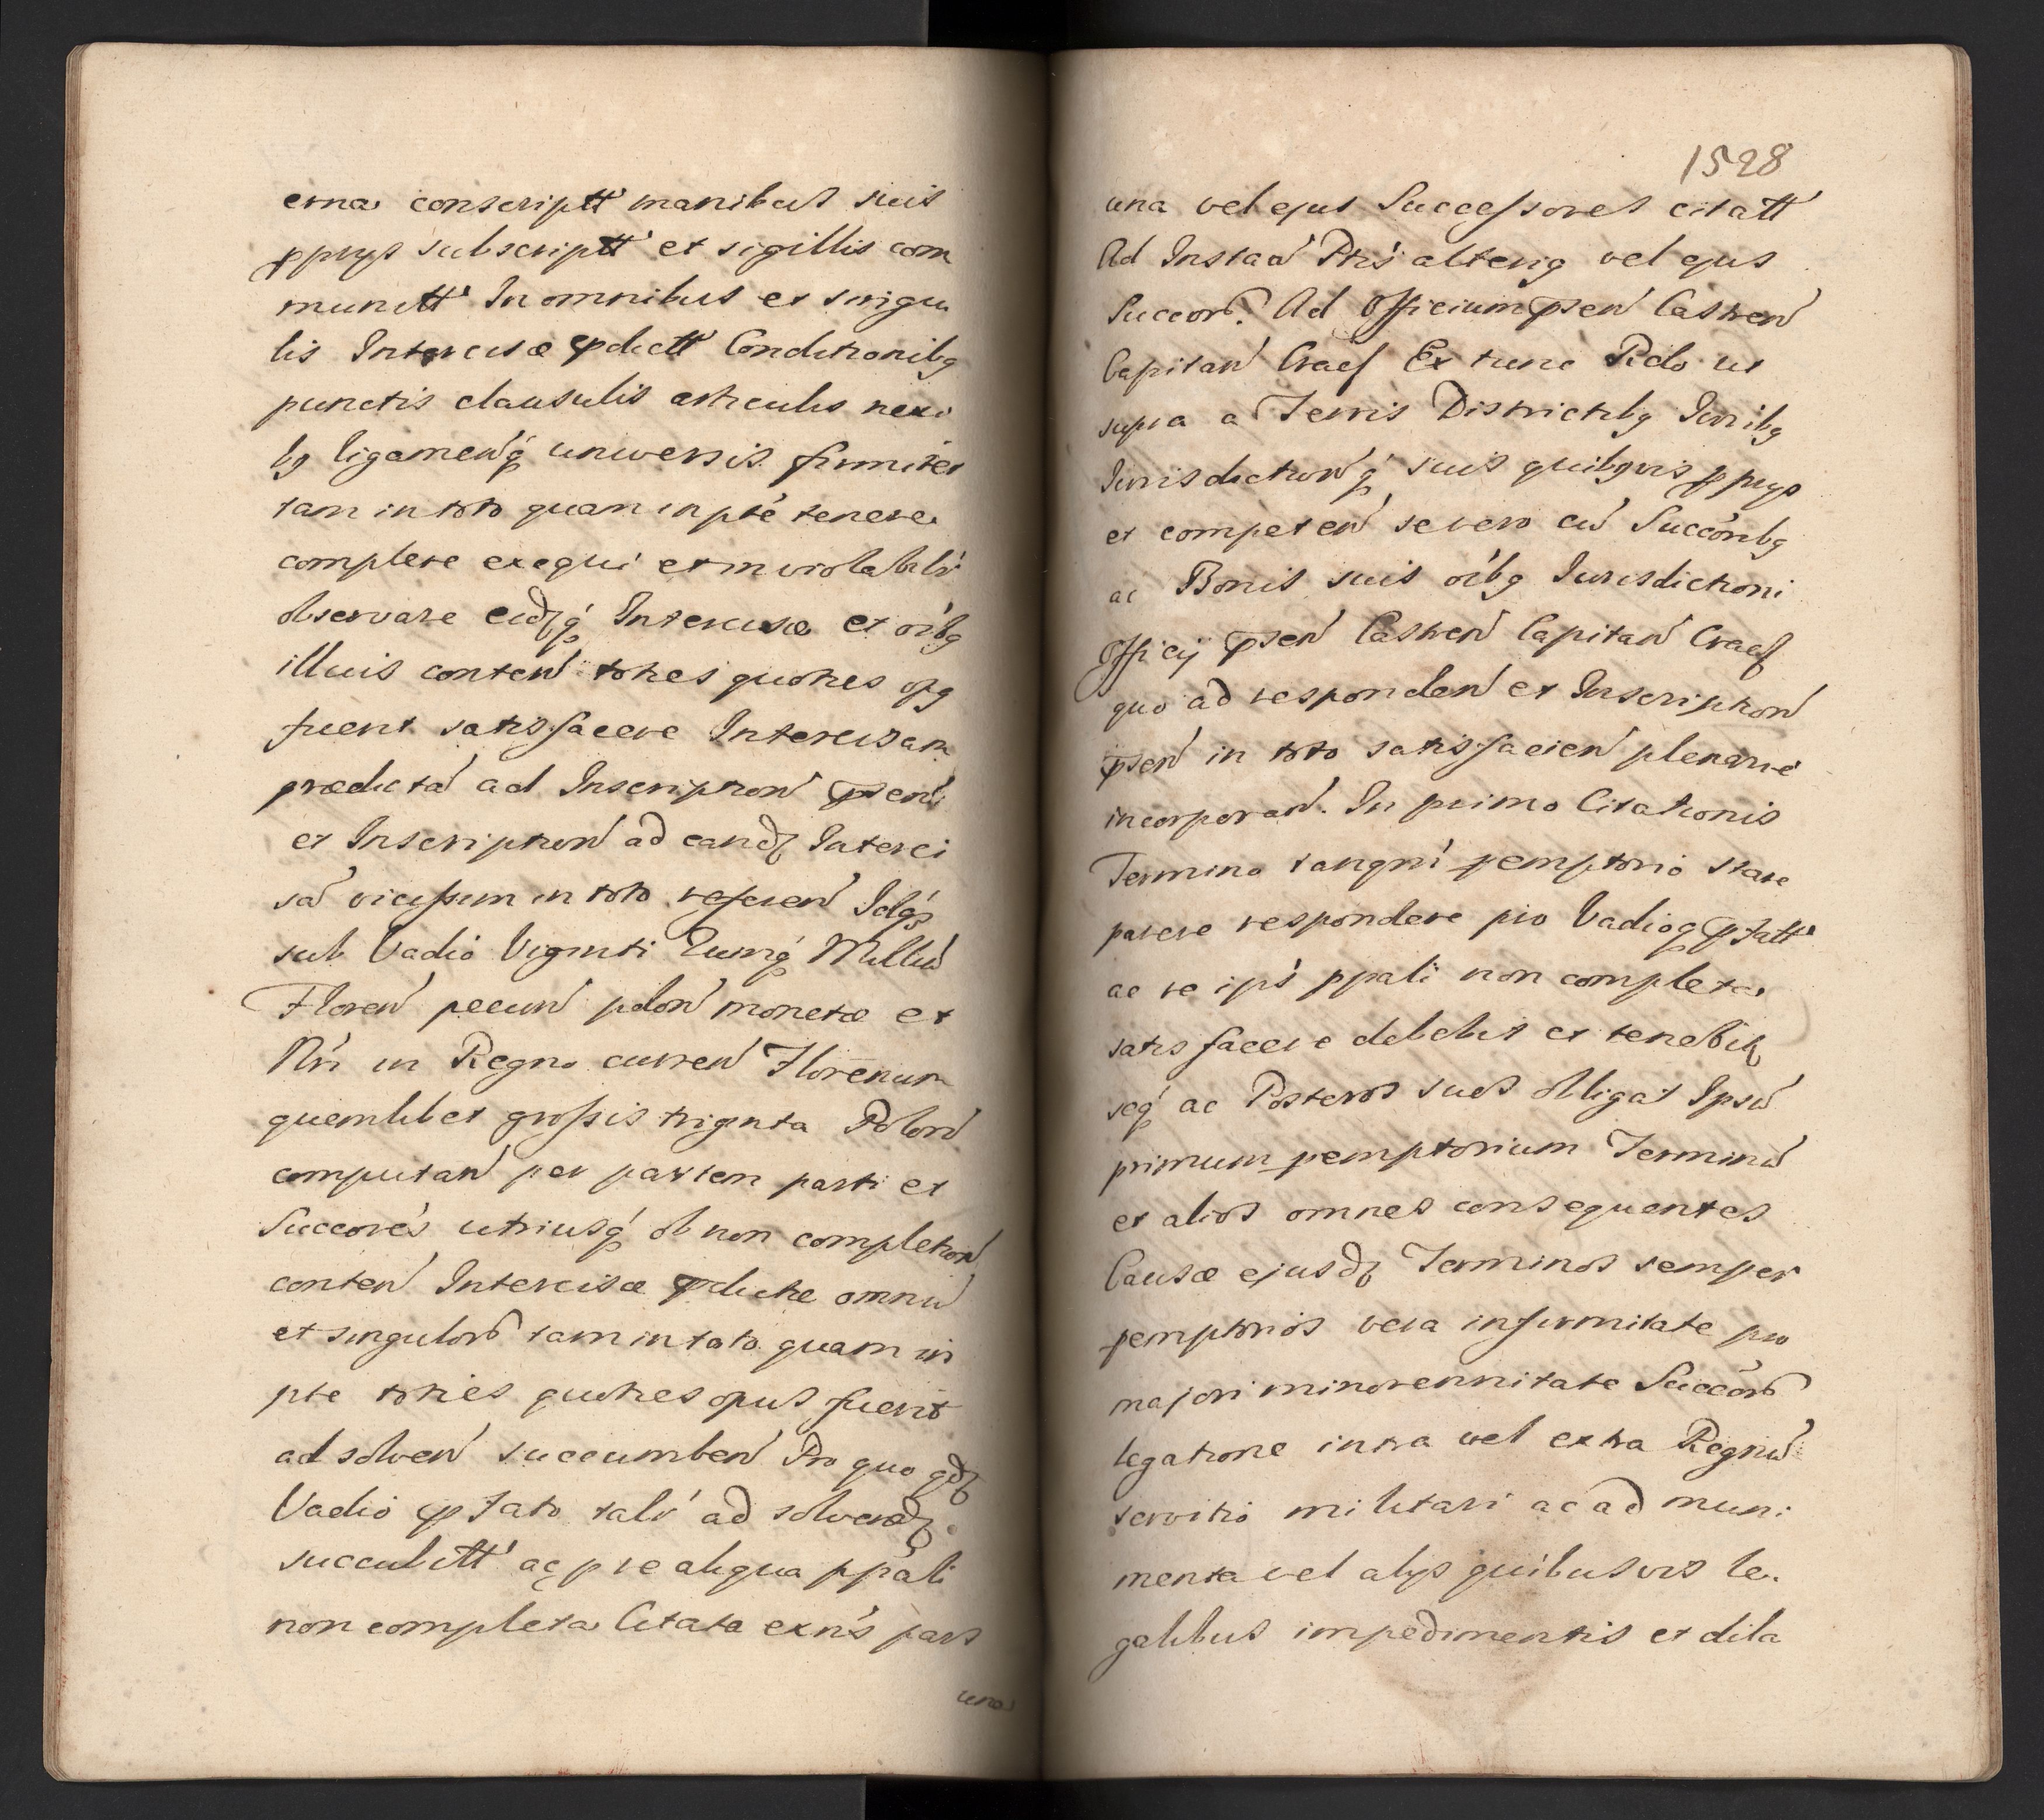 erna conscriptt manibus suis
pprys subscriptt et sigillis com
munitt In omnibus et singu
lis Intercisæ pdictt Conditionibq
punctis clausulis articulis nexi
bq ligamenq universis firmiter
tam in toto quam in pte tenere
complere exequi et inviolabilr
observare eidq Intercisæ et oibq
illius conten toties quoties opq
fuerit satisfacere Intercisam
prædictã ad Inscription psen
et Inscription ad eand Interci
sã vicissim in toto referen Idq
sub Vadio Viginti Millũ
Floren pecun polon monetæ et
Nri in Regno curren Florenum
quemlibet grossis triginta Polon
computan per partem parti et
Succores utriusq ob non completion
conten Intercisæ pdictæ omniũ
et singulor tam in toto quam in
pte toties quoties opus fuerit
ad solven succumben Pro quo qd
Vadio pfato talr ad solvend
succubitt ac p re aliqua ppali
non completa Citata exns pars
una
1528
una vel ejus Successores citatt
Ad Instan Ptis alteriq vel ejus
Succor. Ad Officium psen Castren
Capitan Crac Ex tunc Rclo ut
supra a Terris Districtibq Juribq
Jurisdictionq suis quibqvis pprys
et competen se vero cũ Succoribq
ac Bonis suis oibq Jurisdictioni
Officij psen Castren Capitan Crac
quo ad responden et Inscription
psen in toto satisfacien plenarie
incorporan. In primo Citationis
Termino tanqm pemptorio stare
parere respondere pro Vadioq pfatt
ac re ips ppali non completa
satisfacere debebit et tenebit
seq ac Posteros suos obligat Ipsũ
primum pemptorium Terminũ
et alios omnes consequentes
Causæ ejusd Terminos semper
pemptorios vera infirmitate pro
majori minorennitate Succor
legatione intra vel extra Regnũ
servitio militari ac ad muni
menta vel alys quibusvis le
galibus impedimentis et dila